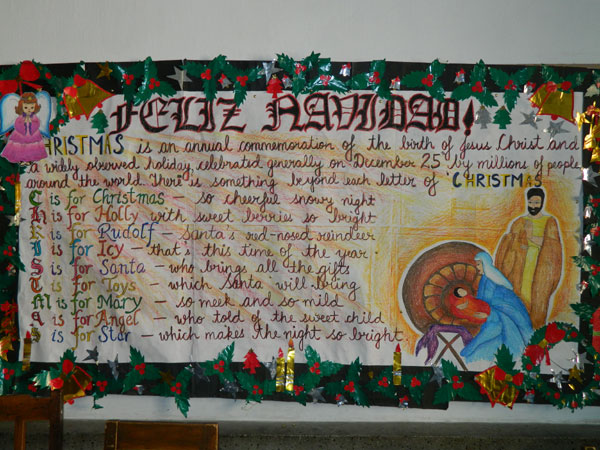 FELIZ NAVIDAD!
CHRISTMAS is an annual commemoration of the birth of Jesus Christ and
a widely observed holiday, celebrated generally on December 25 by millions of people
around the world. There is something beyond each letter of "CHRISTMAS"
C is for Christmas - so cheerful snowy night
H is for Holly with sweet berries so bright
R is for Rudolf - Santa's red-nosed reindeer
I is for Icy - that's this time of the year.
S is for Santa - who brings all the gifts
T is for Toys - which Santa will bring
M is for Mary - so meek and so mild
A is for Angel - who told of the sweet child
S is for Star - which makes the night so bright.